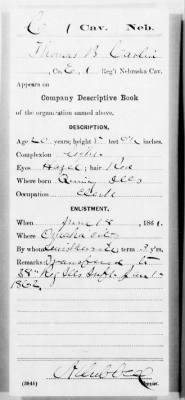 C 1 Cav. Neb.
Thomas B Carlin
, Co. C, 1 Reg't Nebraska Cav.
Appears on
Company Descriptive Book
of the organization named above.
DESCRIPTION.
Age 20 years; height 5 feet inches.
Complexion
Eyes Hazel; hair Red
Where born Quincy Ills
Occupation Clerk
ENLISTMENT.
When June 18, 1861.
Where Omaha
By whom term 3 y'rs.
Remarks: Transferred to
38" Reg Ills Inft Jan 1"
1862
(384b) Copyist.